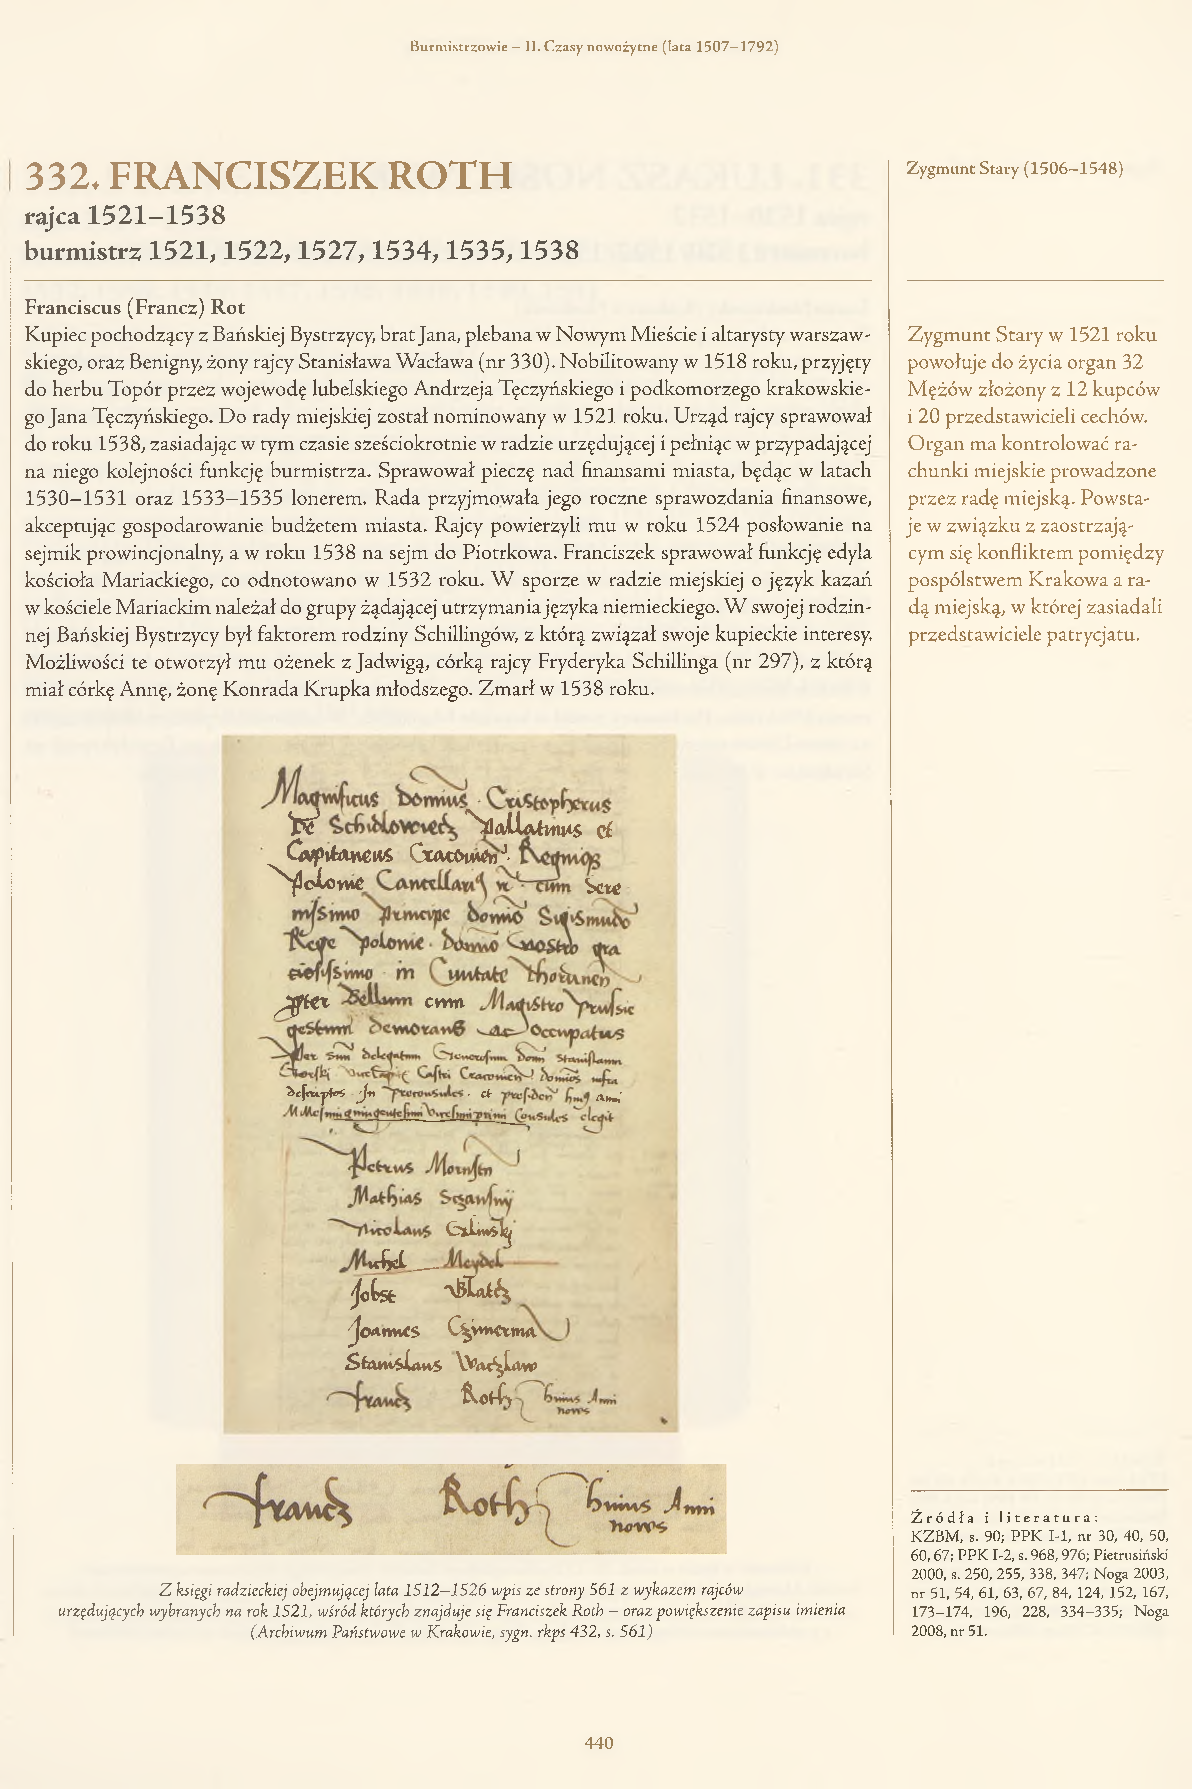 Burmistrzowie – II. Czasy nowożytne (lata 1507–1792)
332. FRANCISZEK ROTH
rajca 1521–1538
burmistrz 1521, 1522, 1527, 1534, 1535, 1538
Franciscus (Francz) Rot
Kupiec pochodzący z Bańskiej Bystrzycy, brat Jana, plebana w Nowym Mieście i altarysty warszaw-
skiego, oraz Benigny, żony rajcy Stanisława Wacława (nr 330). Nobilitowany w 1518 roku, przyjęty
do herbu Topór przez wojewodę lubelskiego Andrzeja Tęczyńskiego i podkomorzego krakowskie-
go Jana Tęczyńskiego. Do rady miejskiej został nominowany w 1521 roku. Urząd rajcy sprawował
do roku 1538, zasiadając w tym czasie sześciokrotnie w radzie urzędującej i pełniąc w przypadającej
na niego kolejności funkcję burmistrza. Sprawował pieczę nad finansami miasta, będąc w latach
1530–1531 oraz 1533–1535 lonerem. Rada przyjmowała jego roczne sprawozdania finansowe,
akceptując gospodarowanie budżetem miasta. Rajcy powierzyli mu w roku 1524 posłowanie na
sejmik prowincjonalny, a w roku 1538 na sejm do Piotrkowa. Franciszek sprawował funkcję edyla
kościoła Mariackiego, co odnotowano w 1532 roku. W sporze w radzie miejskiej o język kazań
w kościele Mariackim należał do grupy żądającej utrzymania języka niemieckiego. W swojej rodzin-
nej Bańskiej Bystrzycy był faktorem rodziny Schillingów, z którą związał swoje kupieckie interesy.
Możliwości te otworzył mu ożenek z Jadwigą, córką rajcy Fryderyka Schillinga (nr 297), z którą
miał córkę Annę, żonę Konrada Krupka młodszego. Zmarł w 1538 roku.
Magnificus Dominus Cristopherus
De Schidlowiecz Pallatinus et
Capitaneus Cracovien Regnique
Polonie
Principe Domino Sigismundo
Rege Polonie Domino Nostro
in Civitate Thorunen
Bellum cum Magistro Prussie
gestum ac Occupatus
Consules elegit
Petrus
Mathias
Nicolaus
Michel Meydel
Jobst Glatcz
Joannes Czimerman
Stanislaus Waczlaw
Francz Roth huius Anni
novus
Francz Roth huius Anni
novus
Z księgi radzieckiej obejmującej lata 1512–1526 wpis ze strony 561 z wykazem rajców
urzędujących wybranych na rok 1521, wśród których znajduje się Franciszek Roth – oraz powiększenie zapisu imienia
(Archiwum Państwowe w Krakowie, sygn. rkps 432, s. 561)
Zygmunt Stary (1506–1548)
Zygmunt Stary w 1521 roku
powołuje do życia organ 32
Mężów złożony z 12 kupców
i 20 przedstawicieli cechów.
Organ ma kontrolować ra-
chunki miejskie prowadzone
przez radę miejską. Powsta-
je w związku z zaostrzają-
cym się konfliktem pomiędzy
pospólstwem Krakowa a ra-
dą miejską, w której zasiadali
przedstawiciele patrycjatu.
Źródła i literatura:
KZBM, s. 90; PPK I-1, nr 30, 40, 50,
60, 67; PPK I-2, s. 968, 976; Pietrusiński
2000, s. 250, 255, 338, 347; Noga 2003,
nr 51, 54, 61, 63, 67, 84, 124, 152, 167,
173–174, 196, 228, 334–335; Noga
2008, nr 51.
440